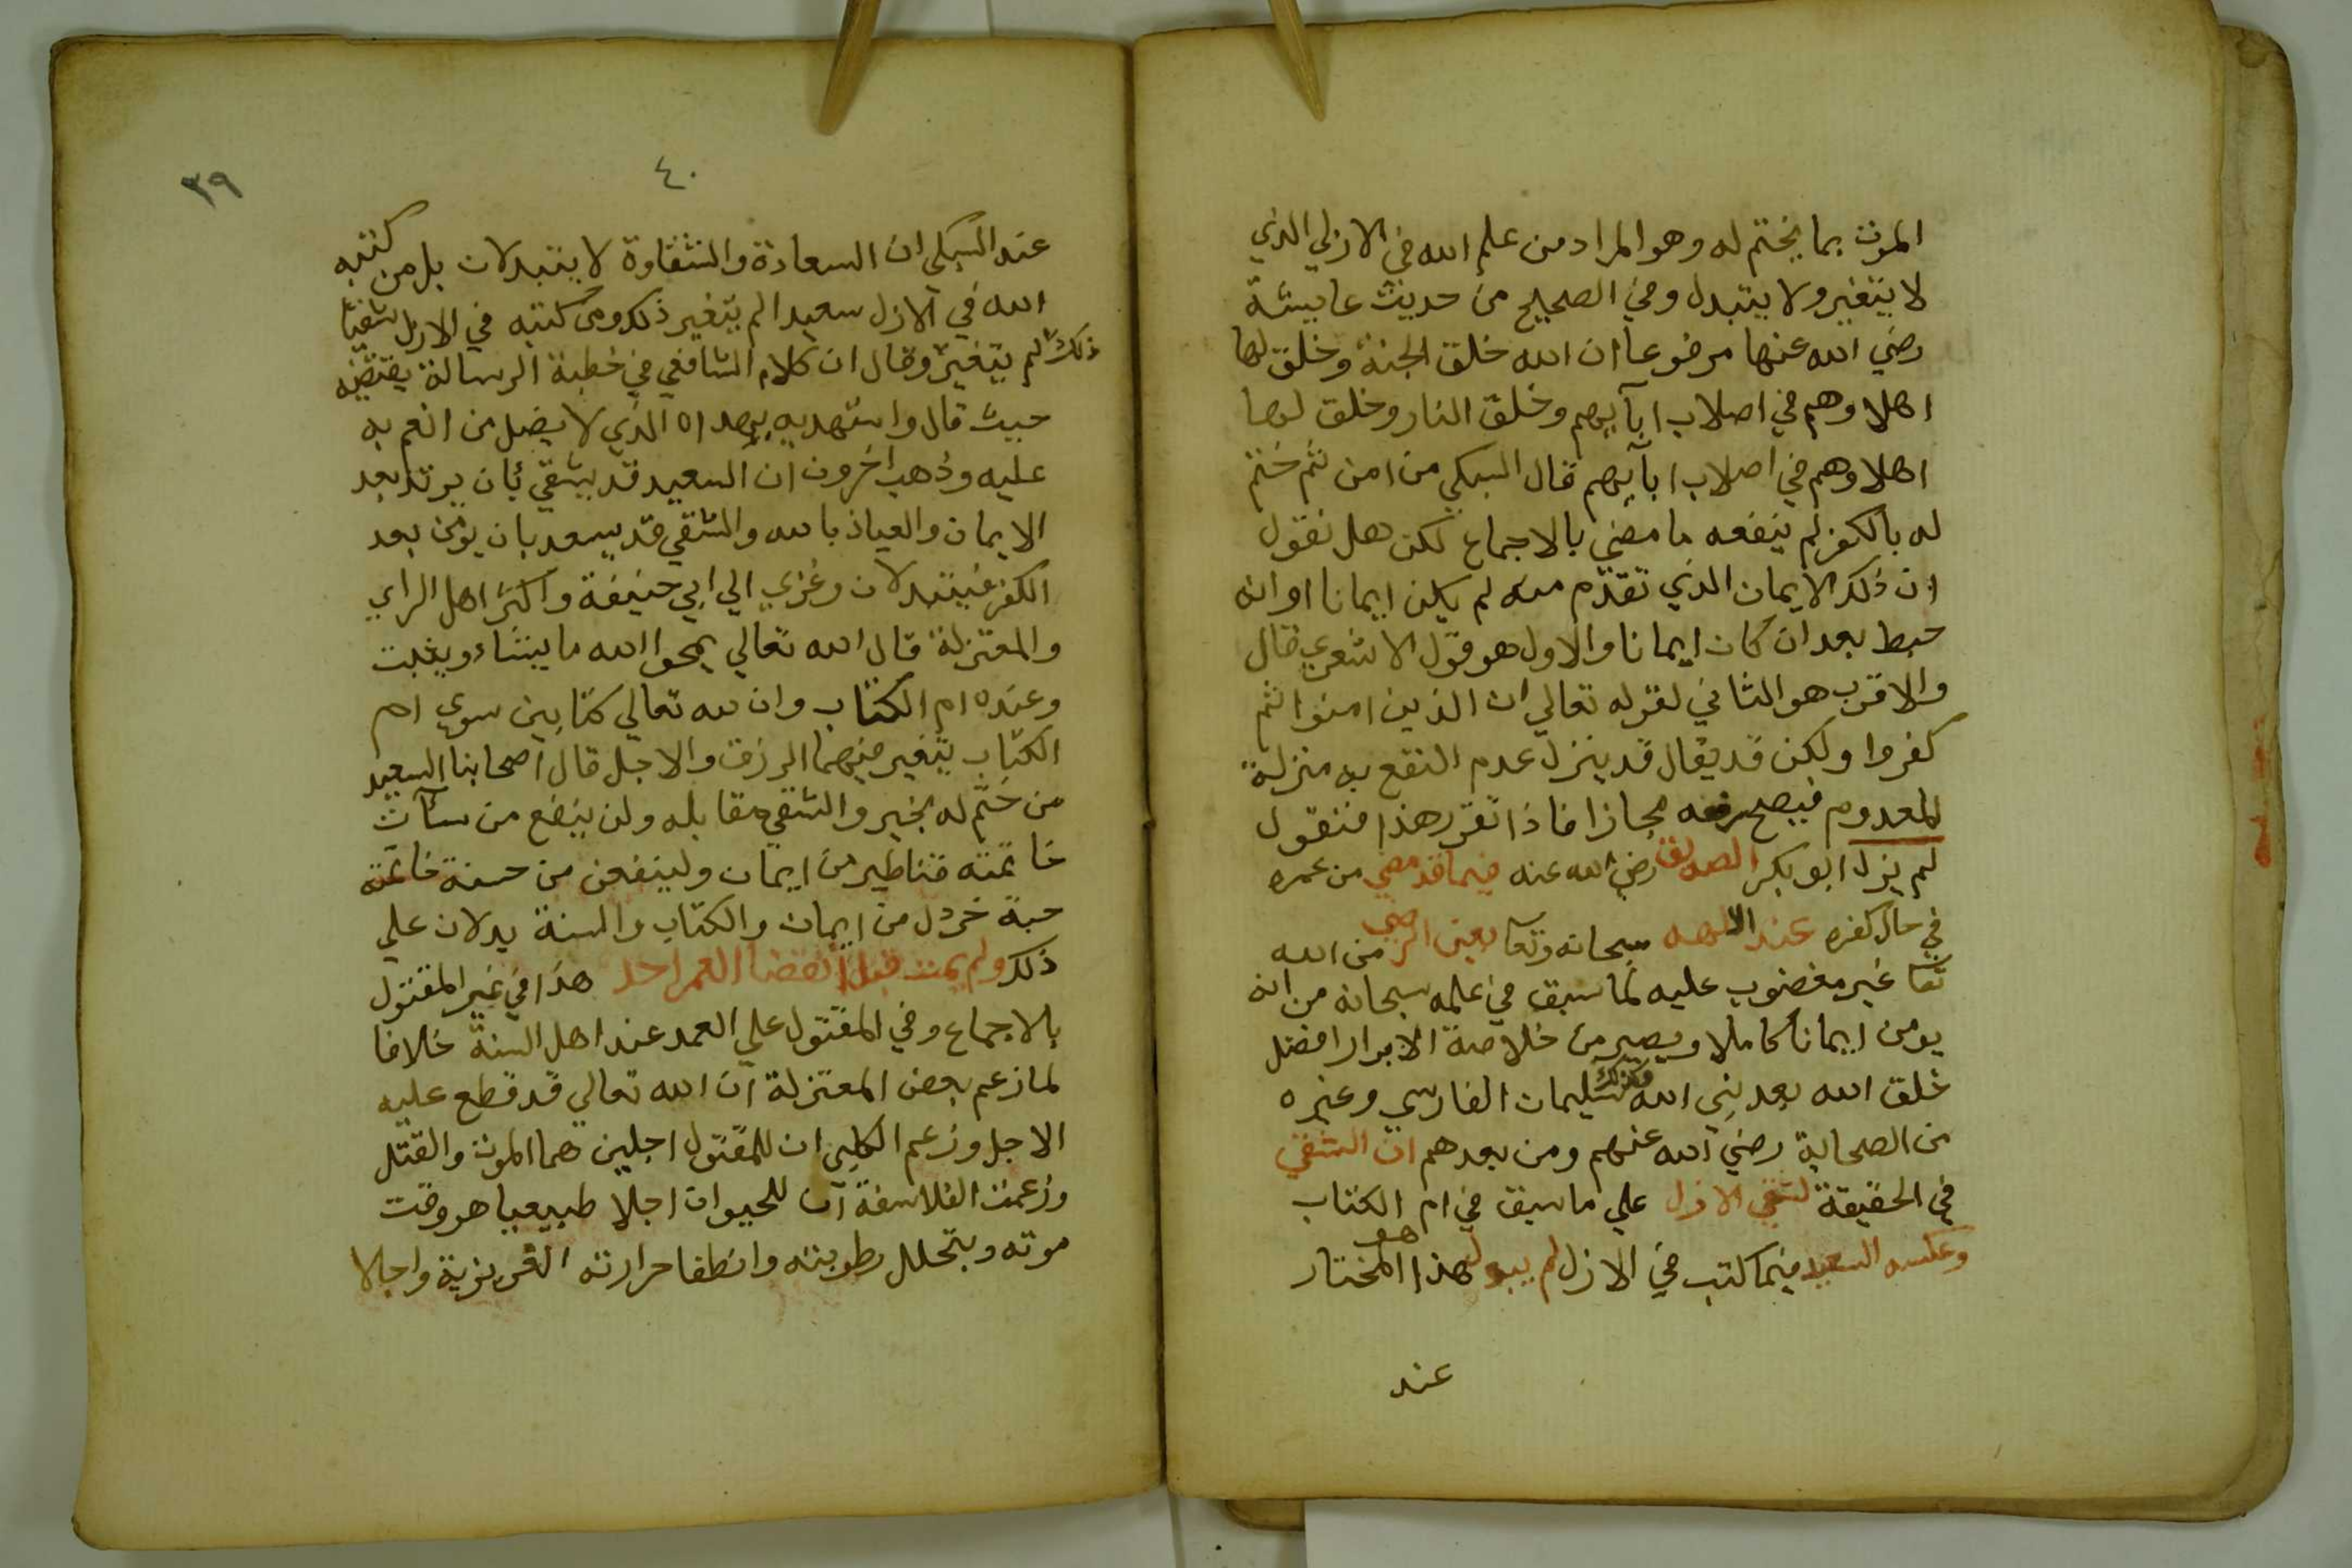 الموت بما يختم له وهو المراد من علم الله في الازلي الذي
لا يتغير ولا يتبدل وفي الصحيح من حديث عايشة
رضي الله عنها مرفوعا ان الله خلق الجنة وخلق لها
اهلا وهم في اصلاب ابآيهم وخلق النار وخلق لها
اهلا وهم في اصلاب ابآيهم قال السبكي من امن ثم ختم
له بالكفر لم ينفعه ما مضي بالاجماع لكن هل نقول
ان ذلك الايمان الذي تقدم منه لم يكن ايمانا او انه
حبط بعد ان كان ايمانا والاول هو قول الاشعري قال
والاقرب هو الثاني لقوله تعالي ان الذين امنوا ثم
كفروا ولكن قد يقال قد ينزل عدم النفع به منزلة
المعدوم فيصح رفعه مجازا فاذا تقرر هذا فنقول
لم يزل ابو بكر الصديق رضي الله عنه فيما قد مضي من عمره
في حال كفره عند الاله سبحانه وتعا بعين الرضي من الله
تعا غير مغضوب عليه لما سبق في علمه سبحانه من انه
يومن ايمانا كاملا ويصير من خلاصة الابرار افضل
خلق الله بعد نبي الله وكذلك سليمان الفارسي وغيره
من الصحابة رضي الله عنهم ومن بعدهم ان الشقي
في الحقيقة لشقي الازل علي ما سبق في ام الكتاب
وعكسه السعيد فيما كتب في الازل لم يبدل هذا هو المختار
عند
٤٠
٣٩
عند السبكي ان السعادة والشقاوة لا يتبدلان بل من كتبه
الله في الازل سعيدا لم يتغير ذلك ومن كتبه في الازل شقيا
ذلك لم يتغير وقال ان كلام الشافعي في خطبة الرسالة يقتضيه
حيث قال واستهديه بهداه الذي لا يضل من انعم به
عليه وذهب اخرون ان السعيد قد يشقي بان يرتد بعد
الايمان والعياذ بالله والشقي قد يسعد بان يومن بعد
الكفر فيتبدلان وعزي الي ابي حنيفة واكثر اهل الراي
والمعتزلة قال الله تعالي يمحوا الله ما يشاء ويثبت
وعنده ام الكتاب وان لله تعالي كتابين سوي ام
الكتاب يتغير فيهما الرزق والاجل قال اصحابنا السعيد
من ختم له بخير والشقي مقابله ولن ينفع من سآت
خاتمته قناطير من ايمان ولينفعن من حسنة خاتمته
حبة خردل من ايمان والكتاب والسنة يدلان علي
ذلك ولم يمت قبل انقضا العمر احد هذا في غير المقتول
بالاجماع وفي المقتول علي العمد عند اهل السنة خلافا
لما زعم بعض المعتزلة ان الله تعالي قد قطع عليه
الاجل وزعم الكلبي ان للمقتول اجلين هما الموت والقتل
وزعمت الفلاسفة ان للحيوان اجلا طبيعيا هو وقت
موته وبتحلل رطوبته وانطفا حرارته الغريزية واجالا